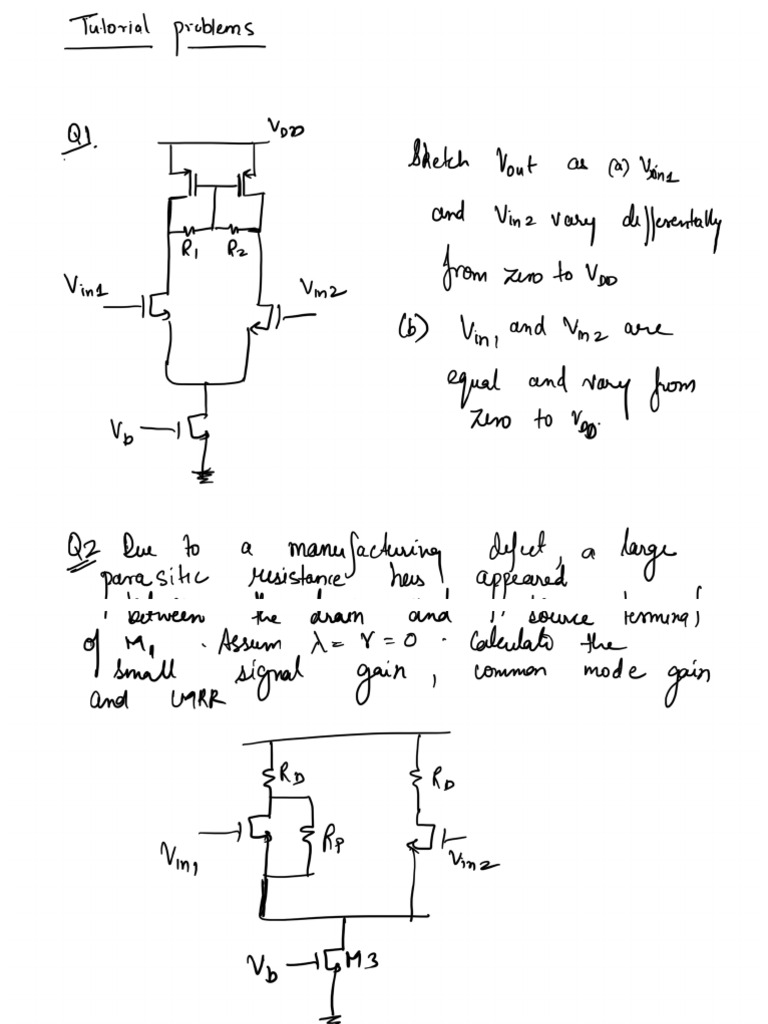 Tutorial problems
Q1.
VDD
R1 R2
Vin1
Vin2
Vb
Sketch Vout as (a) Vin1
and Vin2 vary differentally
from zero to VDD
(b) Vin1 and Vin2 are
equal and vary from
zero to VDD.
Q2 Due to a manufacturing defect, a large
parasitic resistance has appeared
between the drain and source terminal
of M1 . Assum λ = γ = 0 . Calculate the
small signal gain, common mode gain
and CMRR
RD
RD
RP
Vin1
Vin2
Vb
M3